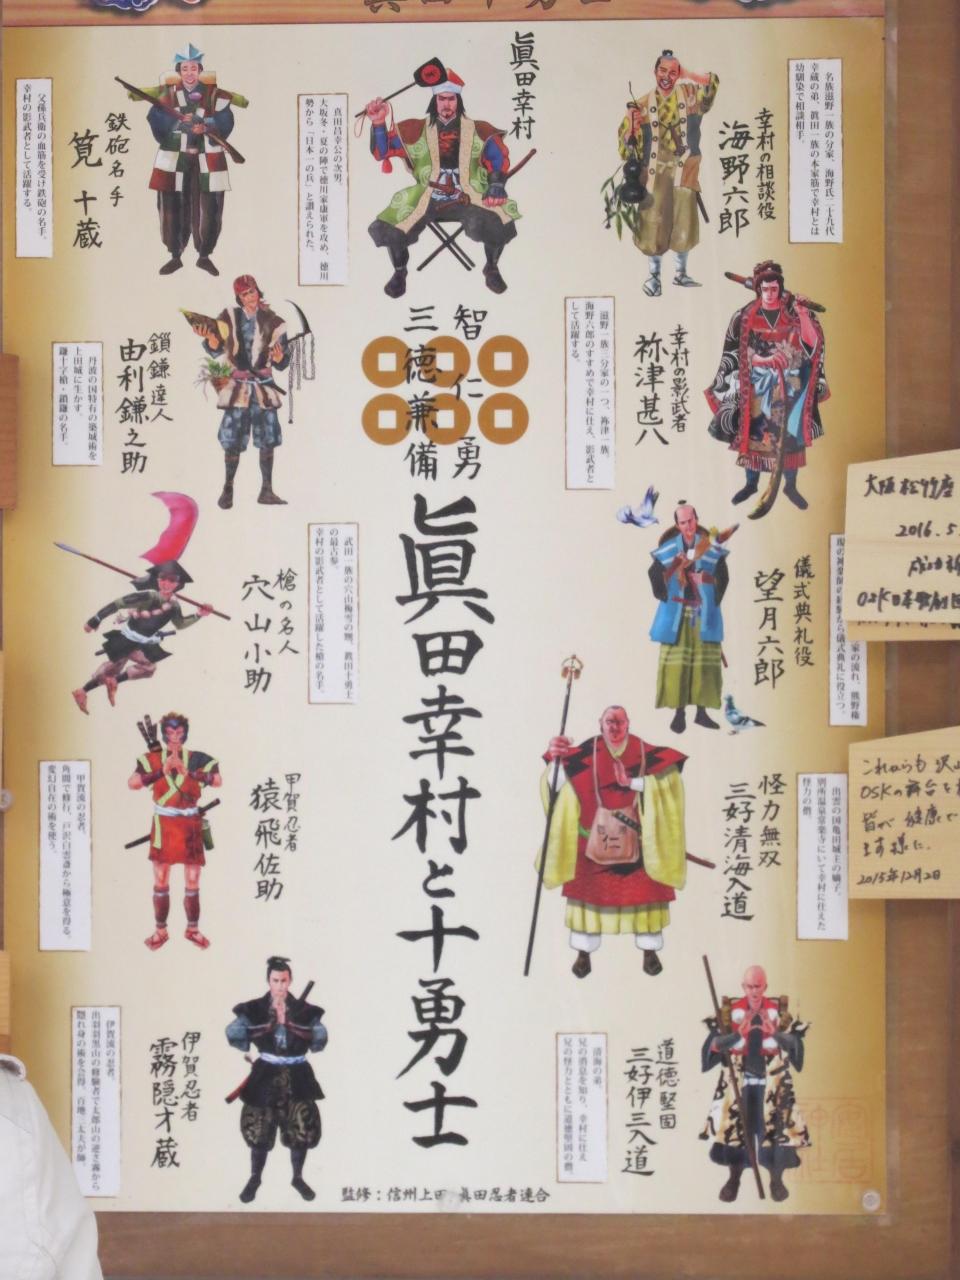 眞田幸村
真田昌幸公の次男。
大坂冬・夏の陣で徳川家康軍を攻め、徳川
勢から「日本一の兵」と讃えられた。
幸村の相談役
海野六郎
名族滋野一族の分家、海野氏二十九代
幸蔵の弟、眞田一族の本家筋で幸村とは
幼馴染で相談相手。
鉄砲名手
筧十蔵
父孫兵衛の血筋を受け鉄砲の名手。
幸村の影武者として活躍する。
幸村の影武者
祢津甚八
滋野一族三分家の一つ、祢津一族。
海野六郎のすすめで幸村に仕え、影武者と
して活躍する。
鎖鎌達人
由利鎌之助
丹波の国特有の築城術を
上田城に生かす。
鎌十字槍・鎖鎌の名手。
智 仁 勇
三徳兼備
眞田幸村と十勇士
儀式典礼役
望月六郎
家の流れ、熊野権
儀式典礼に役立つ。
槍の名人
穴山小助
武田一族の穴山梅雪の甥。眞田十勇士
の最古参。
幸村の影武者として活躍した槍の名手。
怪力無双
三好清海入道
出雲の国亀田城主の嫡子。
別所温泉常楽寺にいて幸村に仕えた
怪力の僧。
仁
甲賀忍者
猿飛佐助
甲賀流の忍者。
角間で修行、戸沢白雲斎から極意を得る。
変幻自在の術を使う。
道徳堅固
三好伊三入道
清海の弟。
兄の消息を知り、幸村に仕え
兄の怪力とともに道徳堅固の僧。
伊賀忍者
霧隠才蔵
伊賀流の忍者。
出羽羽黒山の修験者で太郎山の逆さ霧から
隠れ身の術を会得。百地三太夫が師。
監修：信州上田 眞田忍者連合
大阪松竹座
2016.5.
OSK日本歌劇団
これからも沢山
OSKの舞台を
皆が健康で
ます様に。
2015年12月2日